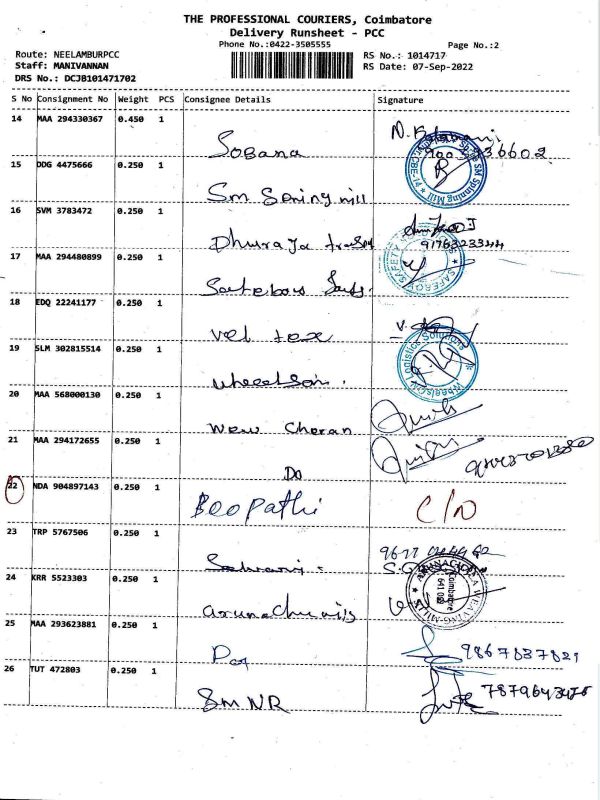 THE PROFESSIONAL COURIERS, Coimbatore
Delivery Runsheet - PCC
Phone No.:0422-3505555
Page No.:2
Route: NEELAMBURPCC
RS No.: 1014717
Staff: MANIVANNAN
RS Date: 07-Sep-2022
DRS No.: DCJB101471702
S No Consignment No Weight PCS Consignee Details Signature
14 MAA 294330367 0.450 1
Sobana
15 DDG 4475666 0.250 1
Sm Spining mill
16 SVM 3783472 0.250 1
Dhuraja
9176323344
17 MAA 294480899 0.250 1
18 EDQ 22241177 0.250 1
vel tex
19 SLM 302815514 0.250 1
wheelson.
20 MAA 568000130 0.250 1
New Cheran
21 MAA 294172655 0.250 1
Do
22 NDA 904897143 0.250 1
Boopathi
23 TRP 5767506 0.250 1
24 KRR 5523303 0.250 1
25 MAA 293623881 0.250 1
9867837821
26 TUT 472803 0.250 1
SMNR